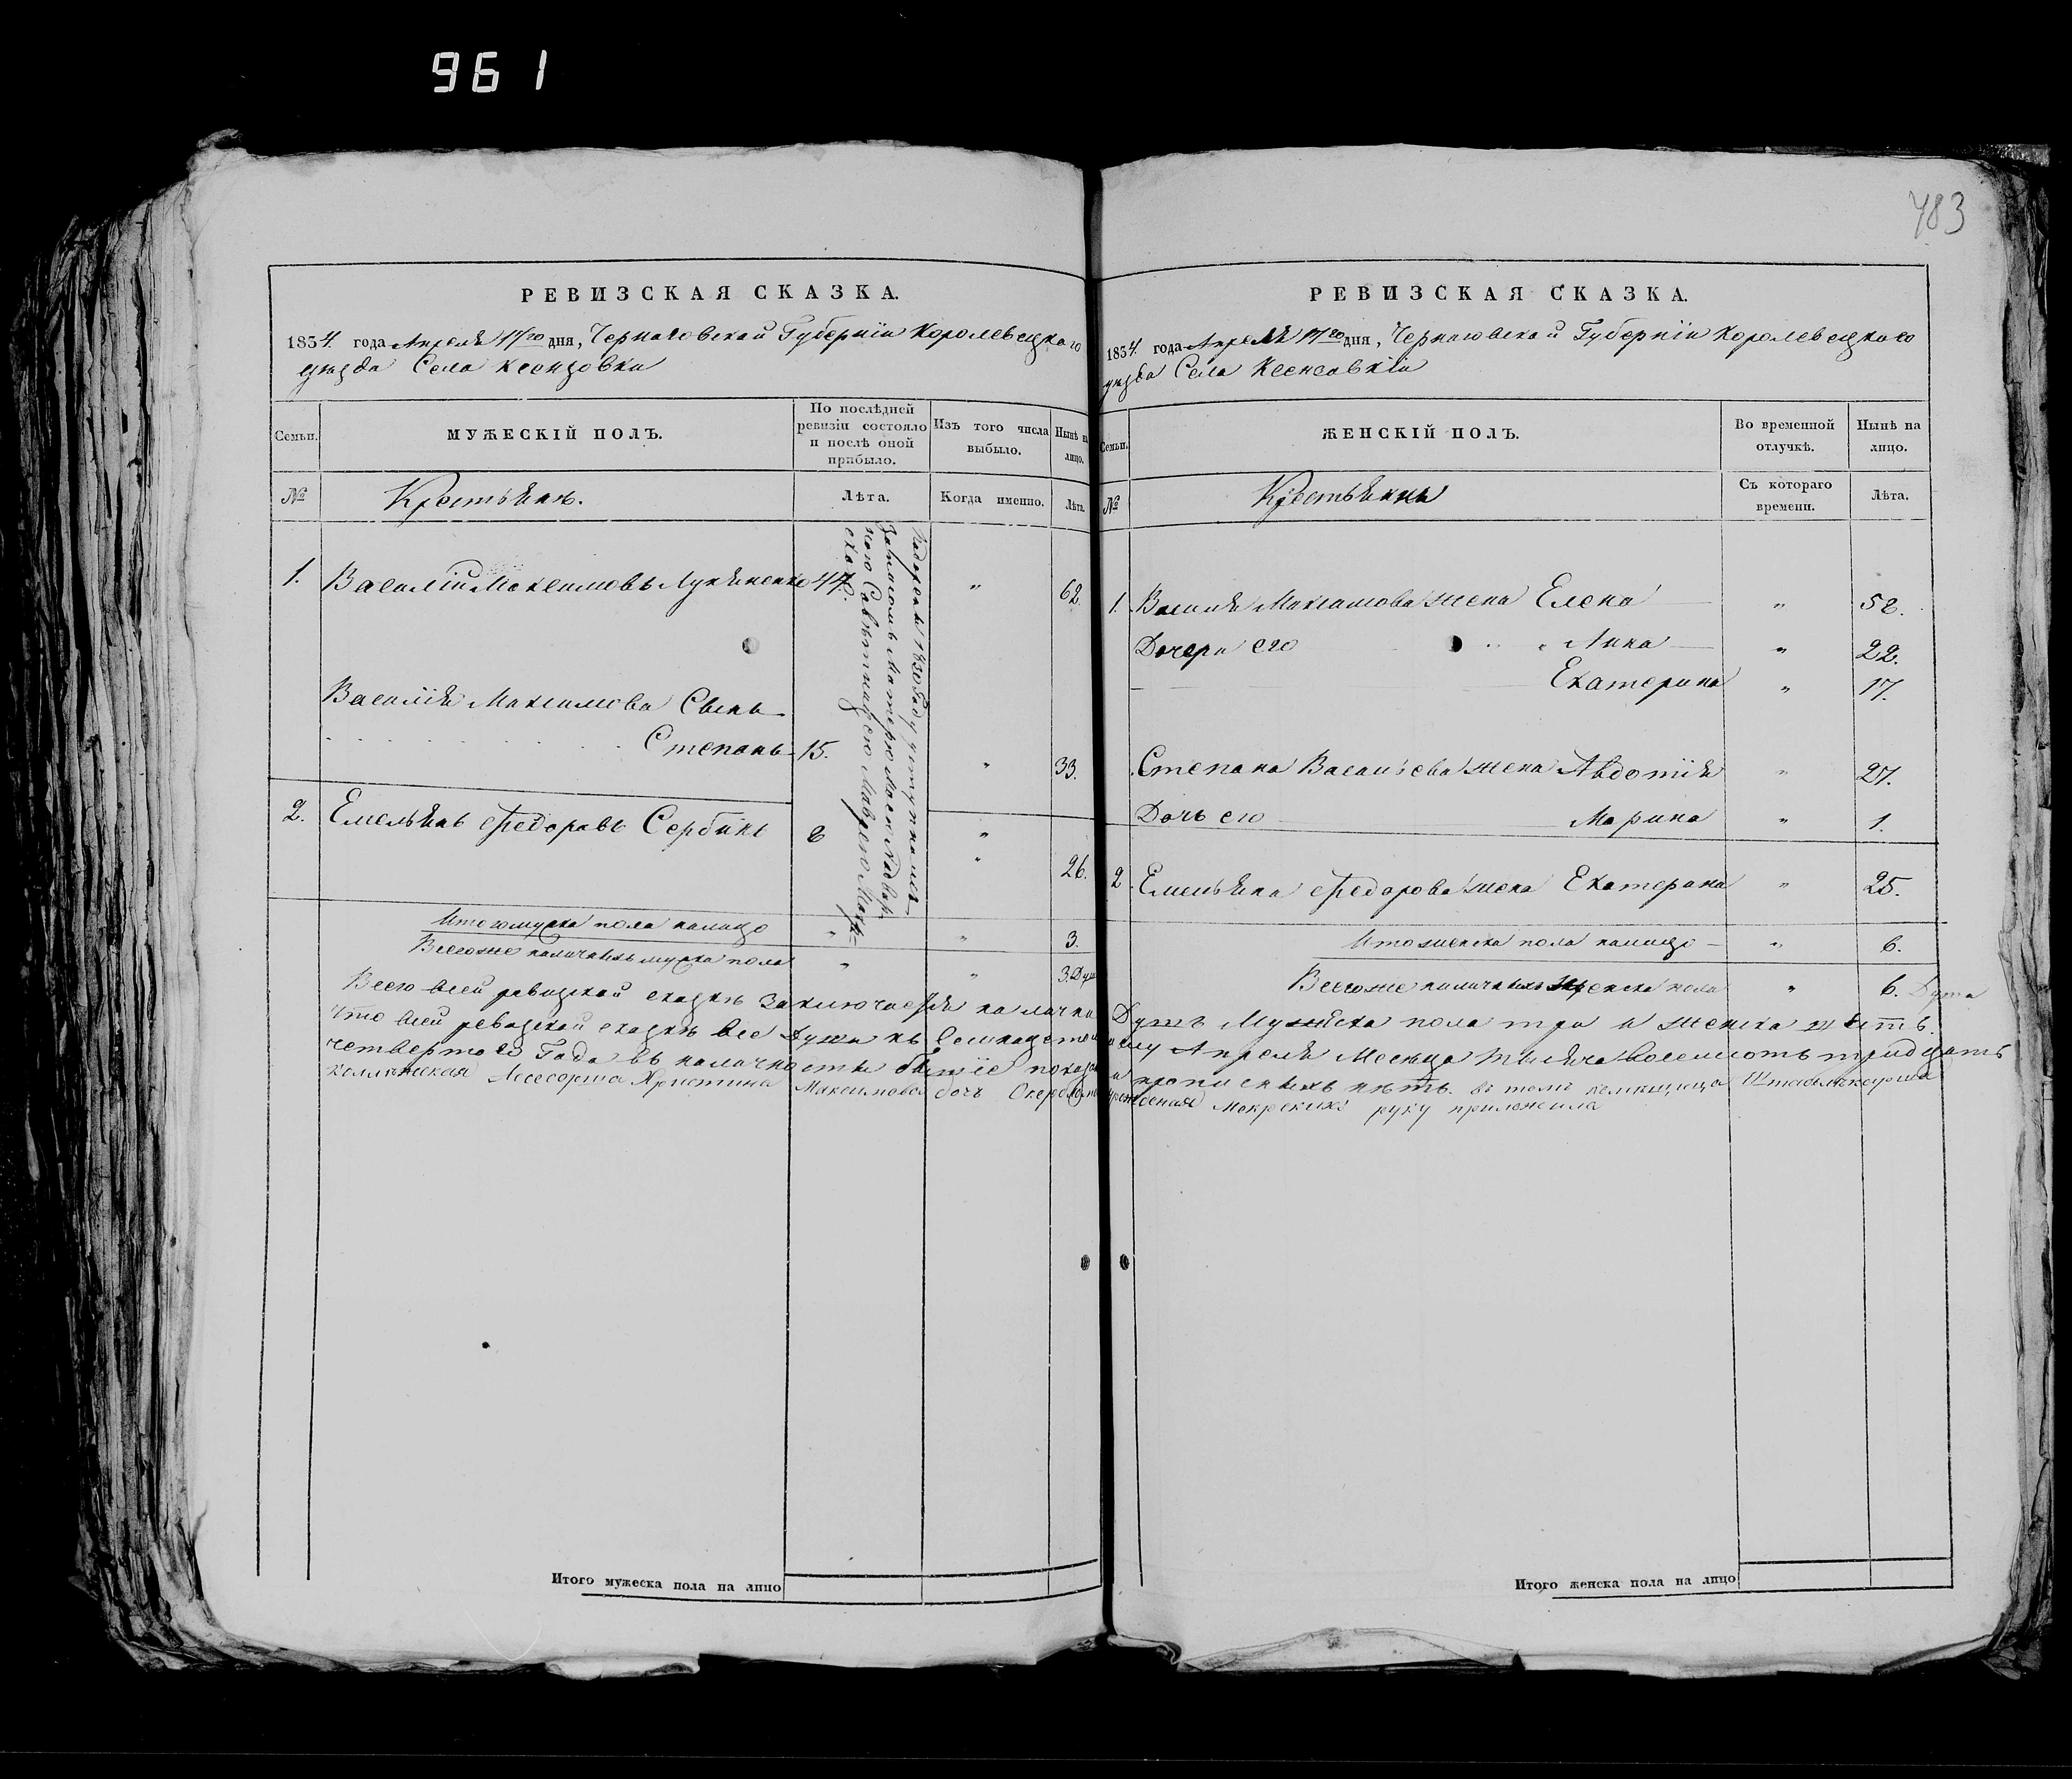 961
783
РЕВИЗСКАЯ СКАЗКА.
1834. года Апреля 17/20 дня, Черниговской Губерніи Королевецкого
уезда Села Ксензовки
Семьи.
МУЖЕСКІЙ ПОЛЪ.
По послѣдней ревизіи состояло и послѣ оной прибыло.
Изъ того числа выбыло.
Нынѣ на лицо.
№
Крестьянъ.
Лѣта.
Когда именно.
Лѣта.
1. Василій Максимовъ Лукяненко 44. " 62.
Василія Максимова Сынъ
Степанъ 15. " 33.
2. Емельянъ Федоровъ Сербинъ 8 "
" 26.
Итого мужска пола налицо " " 3.
Всегоже наличныхъ мужска пола " " 3. Душ
РЕВИЗСКАЯ СКАЗКА.
1834. года Апреля 17/20 дня, Черниговской Губерніи Королевецкого
уезда Села
Семьи.
ЖЕНСКІЙ ПОЛЪ.
Во временной отлучкѣ.
Нынѣ на лицо.
№
Крестьянки
Съ котораго времени.
Лѣта.
1. Василія Максимова жена Елена " 58.
Дочери его " Анна " 22.
Екатерина " 17.
Степана Васильева жена Авдотія " 27.
Дочь его Марина " 1.
2. Емельяна Федорова жена Екатерина " 25.
Итого женска пола налицо " 6.
Всегоже наличныхъ женска пола " 6. Душа
Всего всей ревизкой сказкѣ заключается налично Душъ Мужеска пола три и женска
Что всей ревизкой сказкѣ все души къ Апреля Месяца тысяча восемсотъ тридцать
четвертого Года въ наличности прописныхъ нѣтъ. въ томъ
Асесорша Христина Максимова дочь руку приложила
Итого мужеска пола на лицо
Итого женска пола на лицо